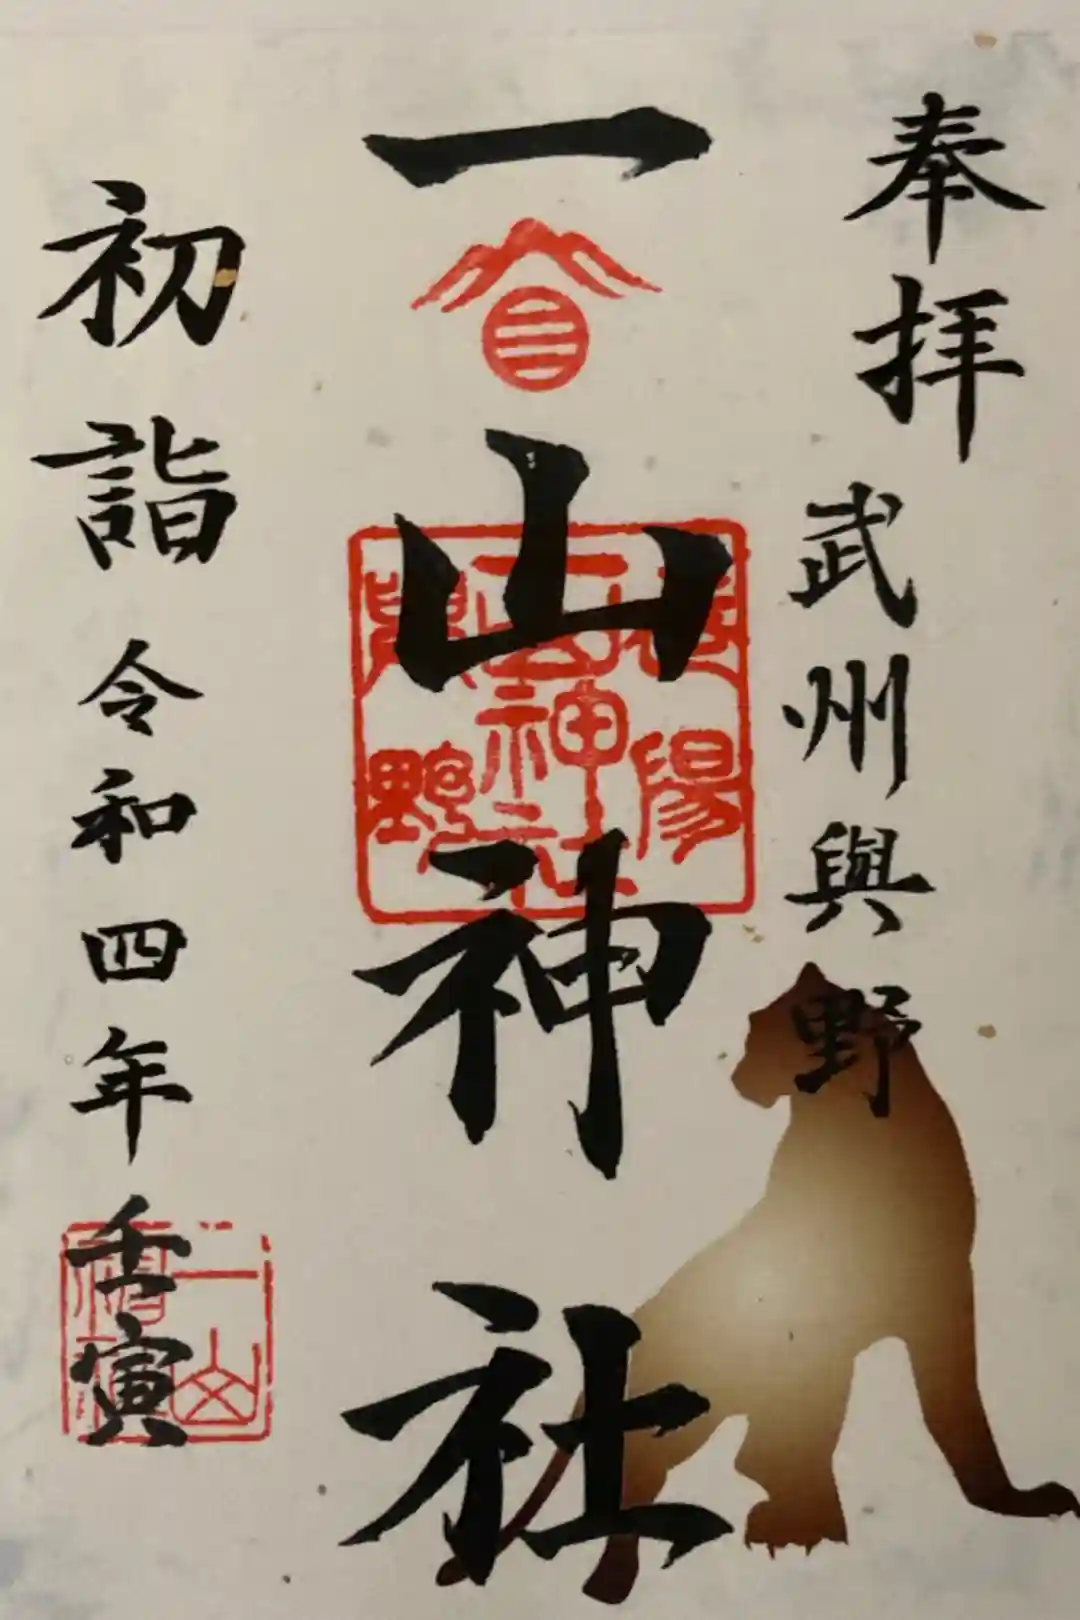 奉拝
武州與野
一山神社
初詣
令和四年壬寅